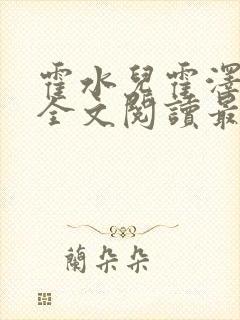 霍水兒霍澤
全文閱讀最
蘭朵朵